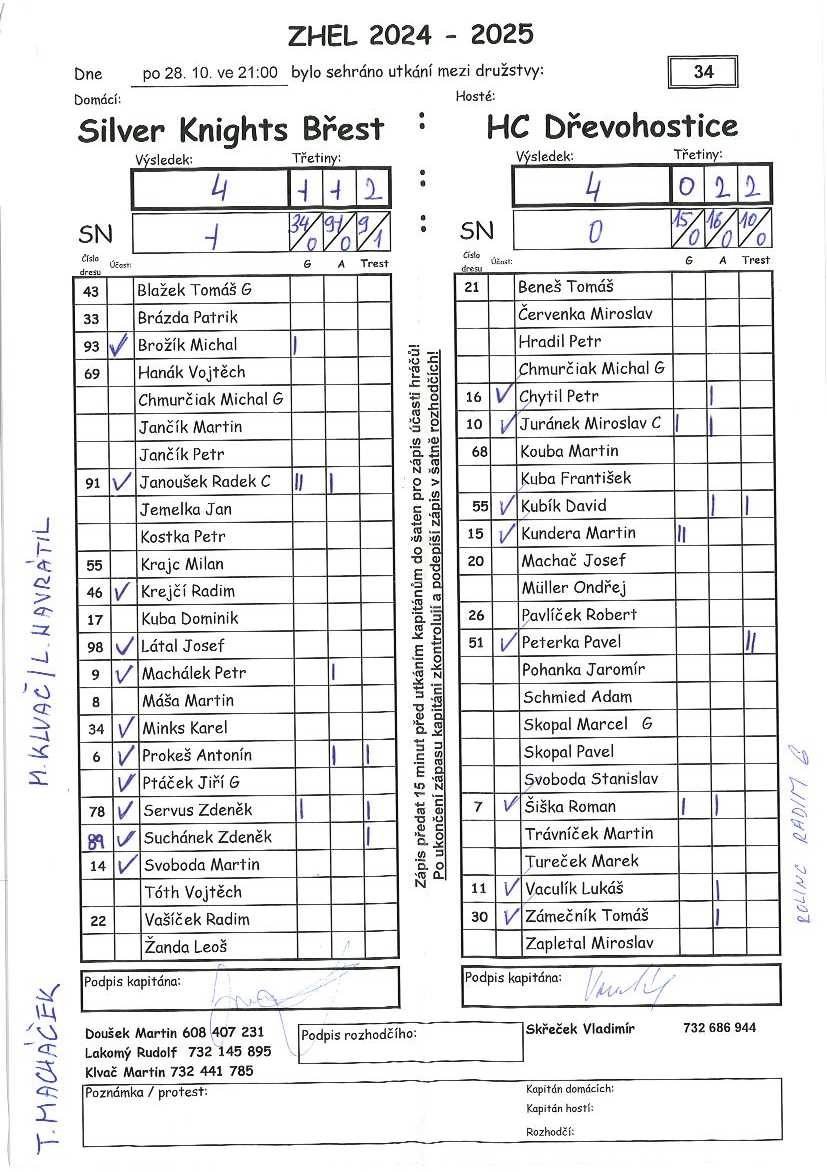 ZHEL 2024 - 2025
Dne po 28. 10. ve 21:00 bylo sehráno utkání mezi družstvy: 34
Domácí: Hosté:
Silver Knights Břest : HC Dřevohostice
Výsledek: Třetiny: Výsledek: Třetiny:
4 1 1 2 : 4 0 2 2
SN 1 34/0 91/0 9/1 : SN 0 15/0 16/0 10/0
Číslo dresu Účast: G A Trest Číslo dresu Účast: G A Trest
43 Blažek Tomáš G
33 Brázda Patrik
93 ✓ Brožík Michal I
69 Hanák Vojtěch
Chmurčiak Michal G
Jančík Martin
Jančík Petr
91 ✓ Janoušek Radek C II I
Jemelka Jan
Kostka Petr
55 Krajc Milan
46 ✓ Krejčí Radim
17 Kuba Dominik
98 ✓ Látal Josef
9 ✓ Machálek Petr I
8 Máša Martin
34 ✓ Minks Karel
6 ✓ Prokeš Antonín I I
✓ Ptáček Jiří G
78 ✓ Servus Zdeněk I I
89 ✓ Suchánek Zdeněk I
14 ✓ Svoboda Martin
Tóth Vojtěch
22 Vašíček Radim
Žanda Leoš
Zápis předat 15 minut před utkáním kapitánům do šaten pro zápis účasti hráčů!
Po ukončení zápasu kapitáni zkontrolují a podepíší zápis v šatně rozhodčích!
21 Beneš Tomáš
Červenka Miroslav
Hradil Petr
Chmurčiak Michal G
16 ✓ Chytil Petr I
10 ✓ Juránek Miroslav C I I
68 Kouba Martin
Kuba František
55 ✓ Kubík David I I
15 ✓ Kundera Martin II
20 Machač Josef
Müller Ondřej
26 Pavlíček Robert
51 ✓ Peterka Pavel II
Pohanka Jaromír
Schmied Adam
Skopal Marcel G
Skopal Pavel
Svoboda Stanislav
7 ✓ Šiška Roman I I
Trávníček Martin
Tureček Marek
11 ✓ Vaculík Lukáš I
30 ✓ Zámečník Tomáš I
Zapletal Miroslav
M. KLVAČ / L. NAVRÁTIL
T. MACHÁČEK
ROLINC RADIM G
Podpis kapitána: Podpis kapitána:
Doušek Martin 608 407 231
Lakomý Rudolf 732 145 895
Klvač Martin 732 441 785
Podpis rozhodčího:
Skřeček Vladimír 732 686 944
Poznámka / protest:
Kapitán domácích:
Kapitán hostí:
Rozhodčí: